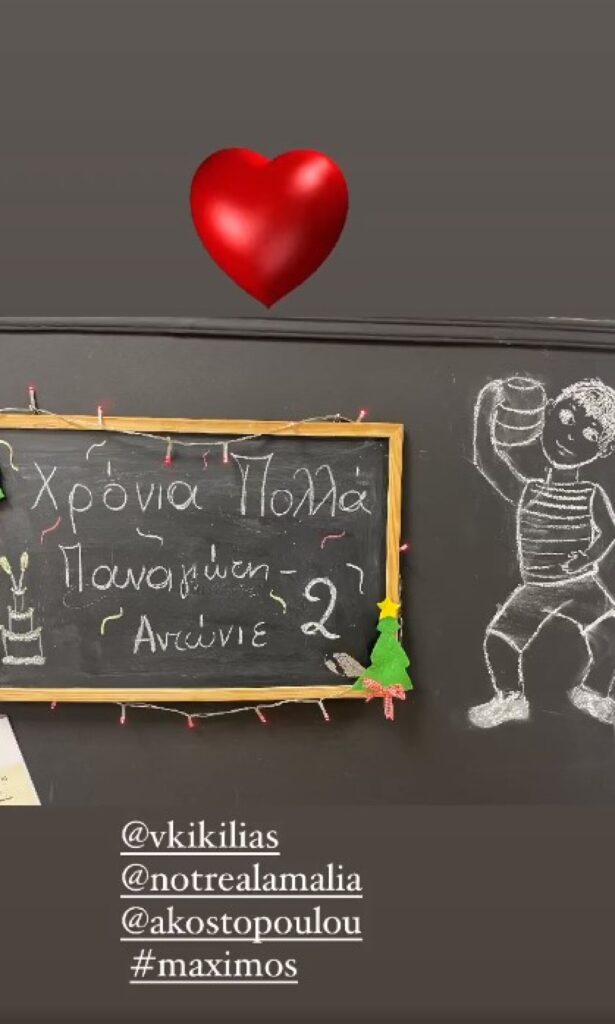 Χρόνια Πολλά
Παναγιώτη-
Αντώνιε 2
@vkikilias
@notrealamalia
@akostopoulou
#maximos